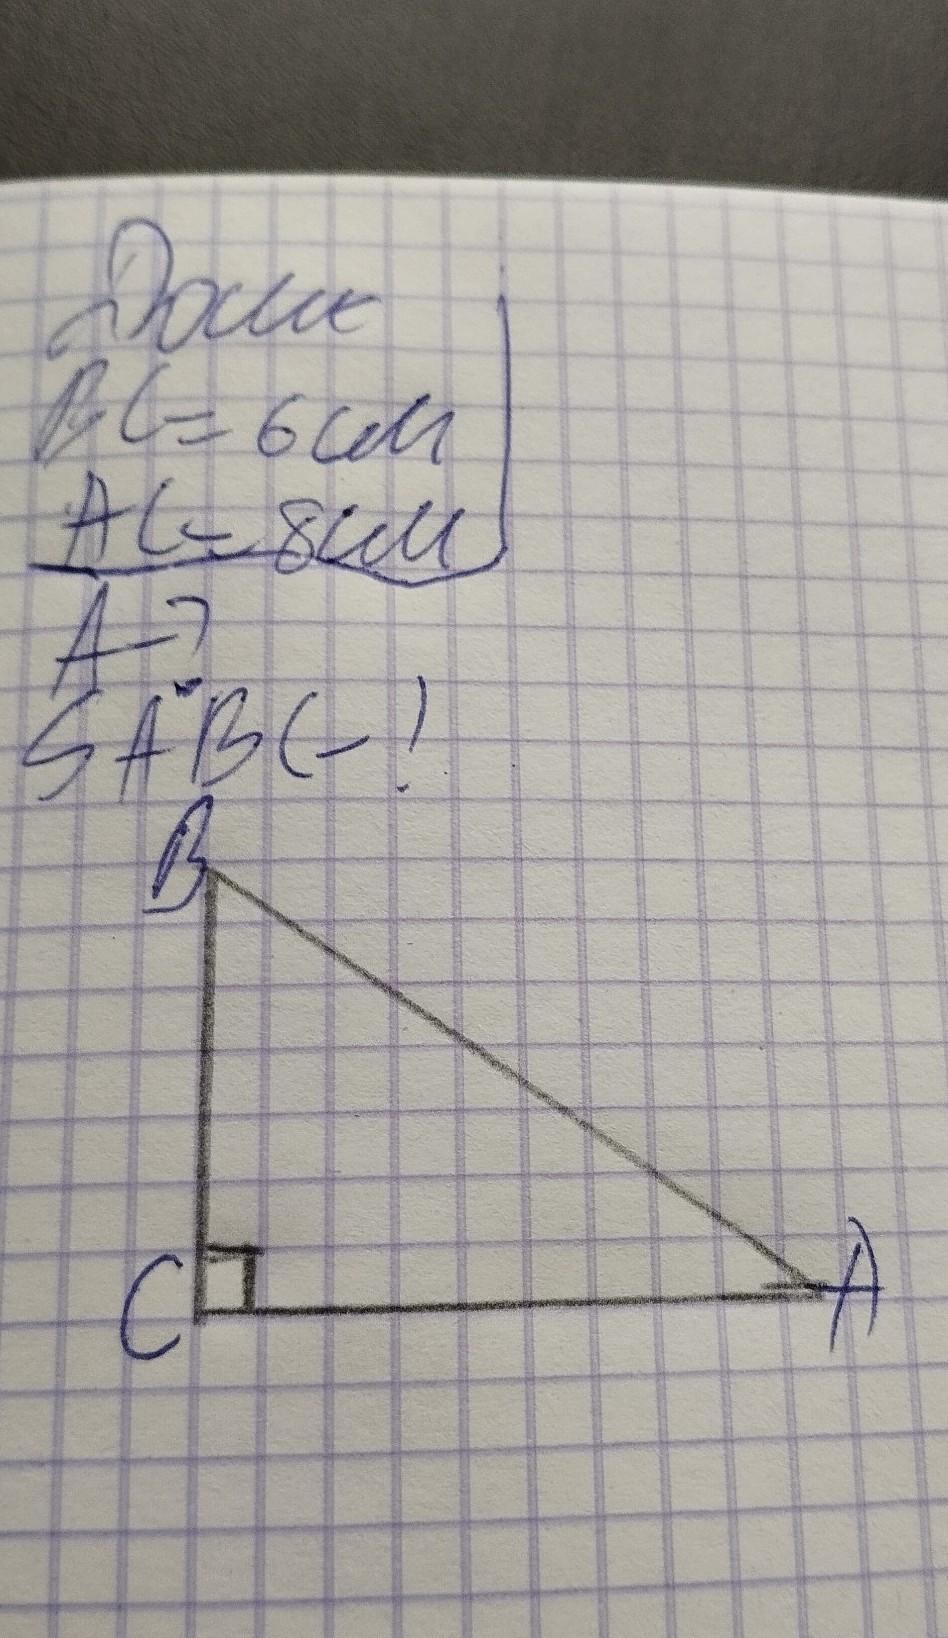 Дано
BC = 6 см
AC = 8 см
A - ?
SABC - !
B
C
A